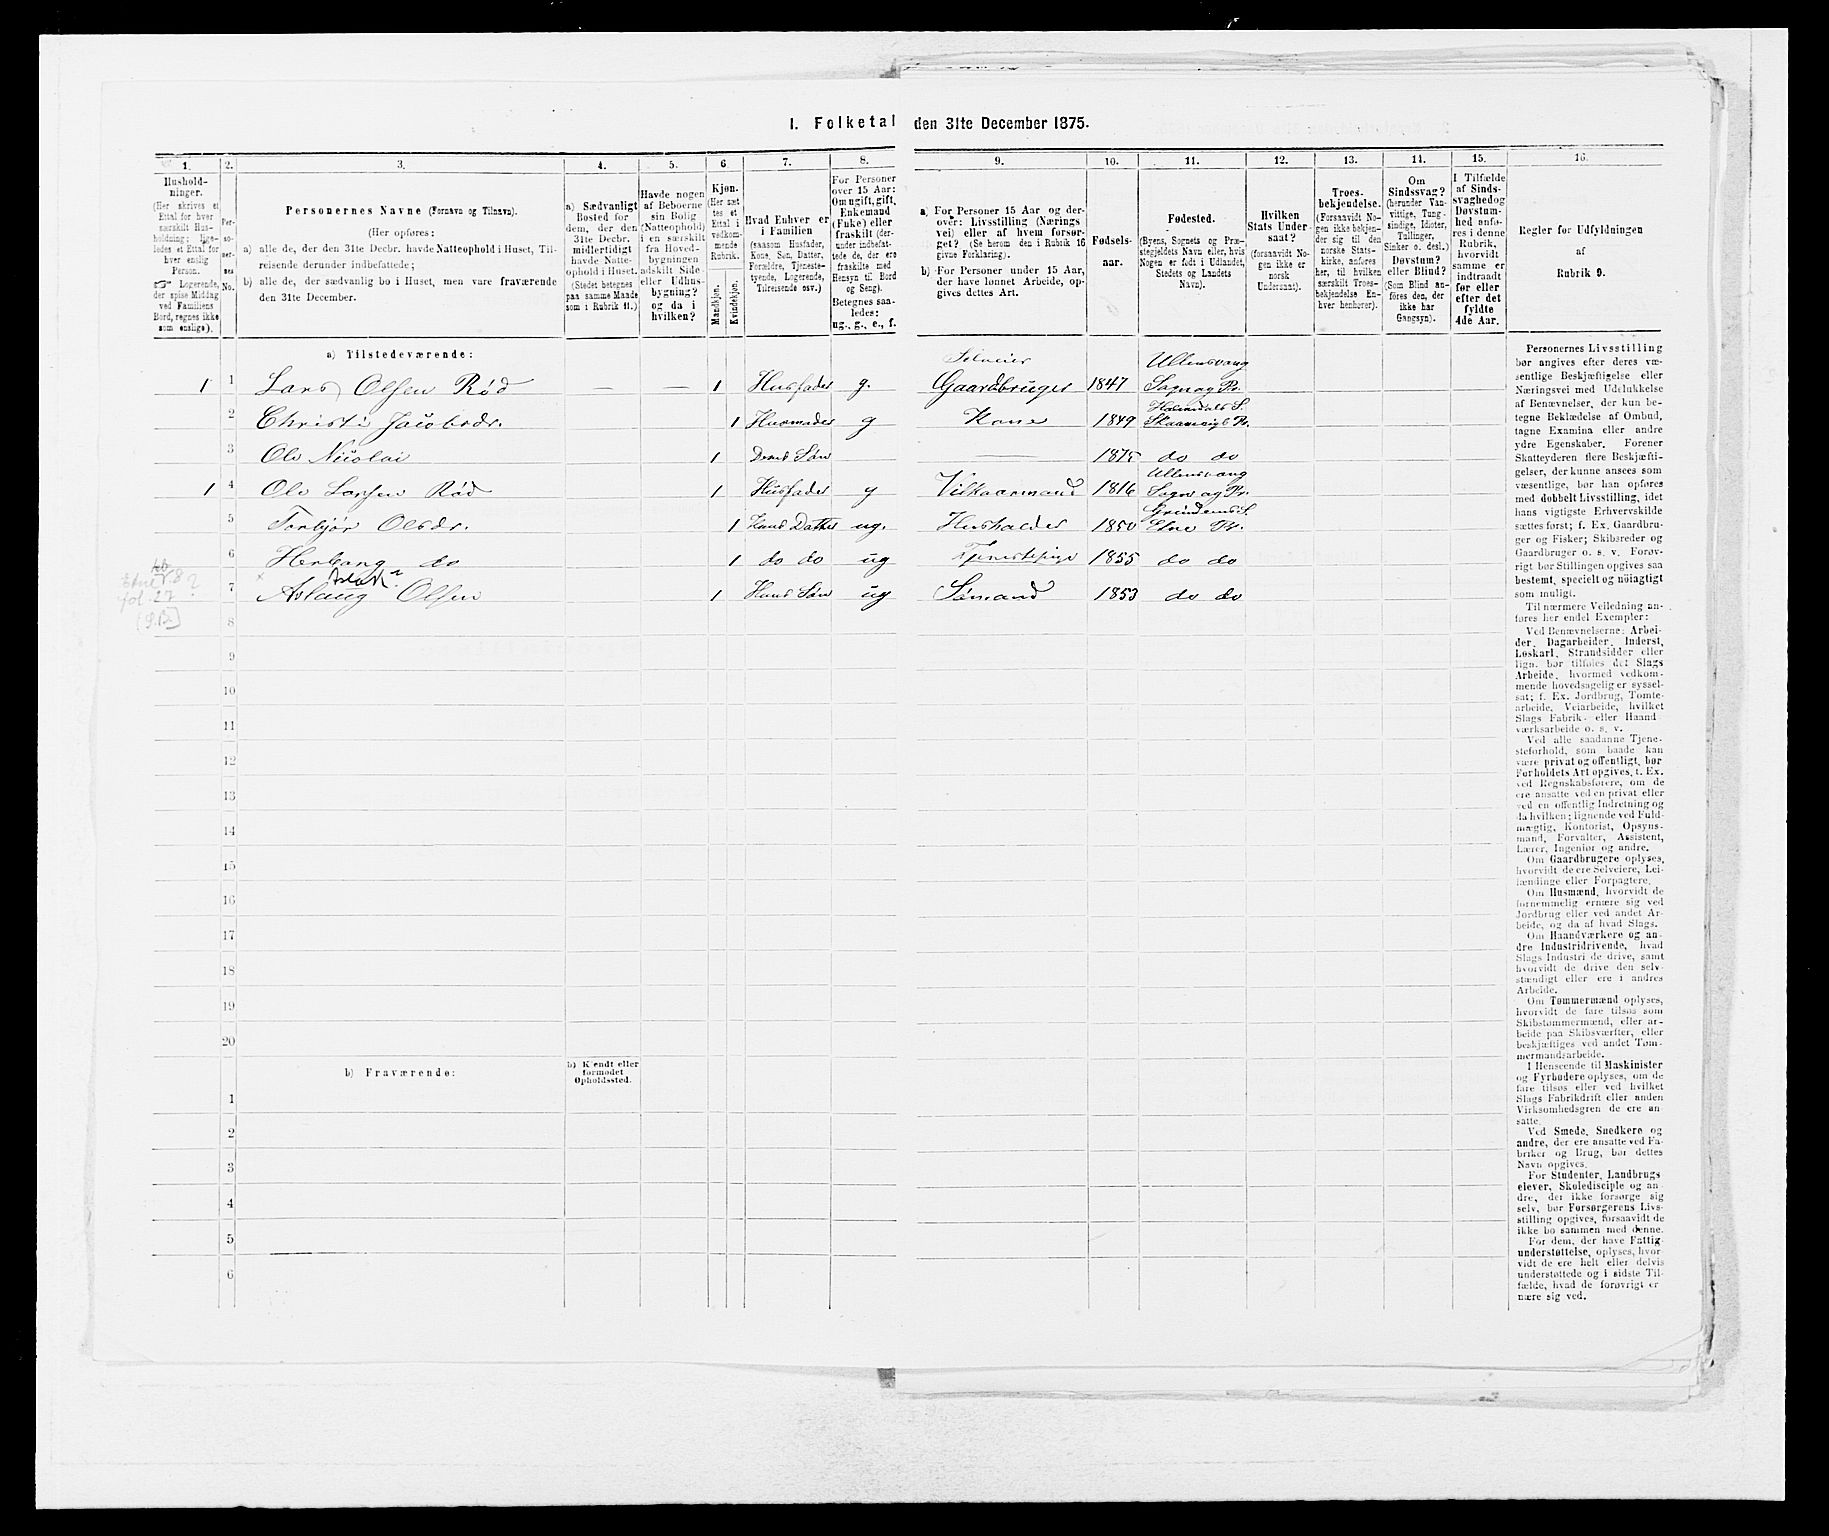 I. Folketal den 31te December 1875.
1. 2. 3. 4. 5. 6. 7. 8. 9. 10. 11. 12. 13. 14. 15. 16.
Hushold-
ninger.
(Her skrives et
Ettal for hver
særskilt Hus-
holdning; lige-
ledes et Ettal for
hver enslig
Person.
☞ Logerende,
der spise Middag
ved Familiens
Bord, regnes ikke
som enslige).
Per-
so-
ner-
nes
No.
Personernes Navne (Fornavn og Tilnavn).
(Her opføres:
a) alle de, der den 31te Decbr. havde Natteophold i Huset, Til-
reisende derunder indbefattede;
b) alle de, der sædvanlig bo i Huset, men vare fraværende
den 31te December.
a) Sædvanligt
Bosted for
dem, der den
31te Decbr.
midlertidigt
havde Natte-
ophold i Huset.
(Stedet betegnes
paa samme Maade
som i Rubrik 11.)
Havde nogen
af Beboerne
sin Bolig
(Natteophold)
i en særskilt
fra Hoved-
bygningen
adskilt Side-
eller Udhus-
bygning?
og da i
hvilken?
Kjøn.
(Her sæt-
tes et
Ettal i
vedkom-
mende
Rubrik.
Mandkjøn.
Kvindekjøn.
Hvad Enhver er
i Familien
(saasom Husfader,
Kone, Søn, Datter,
Forældre, Tjeneste-
tyende, Logerende,
Tilreisende osv.)
For Personer
over 15 Aar:
Om ugift, gift,
Enkemand
(Fuke) eller
fraskilt (der-
under indbefat-
tede de, der ere
fraskilte med
Hensyn til Bord
og Seng).
Betegnes saa-
ledes:
ug., g., e., f.
a) For Personer 15 Aar og der-
over: Livsstilling (Nærings-
vei) eller af hvem forsør-
get? (Se herom den i Rubrik 16
givne Forklaring).
b) For Personer under 15 Aar,
der have lønnet Arbeide, op-
gives dettes Art.
Fødsels-
aar.
Fødested.
(Byens, Sognets og Præ-
stegjeldets Navn eller, hvis
Nogen er født i Udlandet,
Stedets og Landets
Navn).
Hvilken
Stats Under-
saat?
(forsaavidt No-
gen ikke er
norsk
Undersaat).
Troes-
bekjendelse.
(Forsaavidt No-
gen ikke bekjen-
der sig til den
norske Stats-
kirke, anføres
her, til hvilken
særskilt Troes-
bekjendelse En-
hver henhører).
Om
Sindssvag?
(herunder Van-
vittige, Tung-
sindige, Idioter,
Tullinger,
Sinker o. desl.)
Døvstum?
eller Blind?
(Som Blind an-
føres den, der
ikke har
Gangsyn).
I Tilfælde
af Sinds-
svaghed og
Døvstum-
hed anfø-
res i denne
Rubrik,
hvorvidt
samme er
indtraadt
før eller
efter det
fyldte
4de Aar.
Regler for Udfyldningen
af
Rubrik 9.
a) Tilstedeværende:
1 1 Lars Olsen Rød — — 1 Husfader g. Selveier Gaardbruger 1847 Ullensvang Sogn og Pr.
2 Christi Jacobsdr. 1 Husmoder g Kone 1849 Skaanevigs Pr.
3 Ole Nicolai 1 Deres Søn — 1875 do do
1 4 Ole Larsen Rød 1 Husfader g Vilkaarmand 1816 Ullensvang Sogn og Pr.
5 Torbjør Olsdr. 1 Hans Datter ug. Husholder 1850 Etne Pr.
6 Herborg do 1 do do ug Tjenestepige 1855 do do
7 Aslaug Olsen 1 Hans Søn ug Sømand 1853 do do
Aslak?
Etne
fol. 27
8
9
10
11
12
13
14
15
16
17
18
19
20
b) Fraværende:
b) Kjendt eller
formodet
Opholdssted.
1
2
3
4
5
6
Personernes Livsstilling
bør angives efter deres væ-
sentlige Beskjæftigelse eller
Næringsvei med Udelukkelse
af Benævnelser, der kun be-
tegne Beklædelse af Ombud,
tagne Examina eller andre
ydre Egenskaber. Forener
Skatteyderen flere Beskjæfti-
gelser, der kunne ansees som
væsentlige, bør han opføres
med dobbelt Livsstilling, idet
hans vigtigste Erhvervskilde
sættes først; f. Ex. Gaardbru-
ger og Fisker; Skibsreder og
Gaardbruger o. s. v. Forøv-
rigt bør Stillingen opgives saa
bestemt, specielt og nøiagtigt
som muligt.
Til nærmere Veiledning an-
føres her endel Exempler:
Ved Benævnelserne: Arbei-
der, Dagarbeider, Inderst,
Løskarl, Strandsidder eller
lign. bør tilføies det Slags
Arbeide, hvormed vedkom-
mende hovedsagelig er syssel-
sat; f. Ex. Jordbrug, Tomte-
arbeide, Veiarbeide, hvilket
Slags Fabrik- eller Haand-
værksarbeide o. s. v.
Ved alle saadanne Tjene-
steforhold, som baade kan
være privat og offentligt, bør
Forholdets Art opgives, t. Ex.
ved Regnskabsførere, om de
ere ansatte ved en privat eller
ved en offentlig Indretning og
da hvilken; lignende ved Fuld-
mægtig, Kontorist, Opsyns-
mand, Forvalter, Assistent,
Lærer, Ingeniør og andre.
Om Gaardbrugere oplyses,
hvorvidt de ere Selveiere, Lei-
lændinge eller Forpagtere.
Om Husmænd, hvorvidt de
fornemmelig ernære sig ved
Jordbrug eller ved andet Ar-
beide, og da af hvad Slags.
Om Haandværkere og an-
dre Industridrivende, hvad
Slags Industri de drive, samt
hvorvidt de drive den selv-
stændigt eller ere i andres
Arbeide.
Om Tømmermænd oplyses,
hvorvidt de fare tilsøs som
Skibstømmermænd, eller ar-
beide paa Skibsværfter, eller
beskjæftiges ved andet Tøm-
mermandsarbeide.
I Henseende til Maskinister
og Fyrbødere oplyses, om de
fare tilsøs eller ved hvilket
Slags Fabrikdrift eller anden
Virksomhedsgren de ere an-
satte.
Ved Smede, Snedkere og
andre, der ere ansatte ved Fa-
briker og Brug, bør dettes
Navn opgives.
For Studenter, Landbrugs-
elever, Skoledisciple og an-
dre, der ikke forsørge sig
selv, bør Forsørgerens Livs-
stilling opgives, forsaavidt de
ikke bo sammen med denne.
For dem, der have Fattig-
understøttelse, oplyses, hvor-
vidt de ere helt eller delvis
understøttede og i sidste Til-
fælde, hvad de forøvrigt er-
nære sig ved.